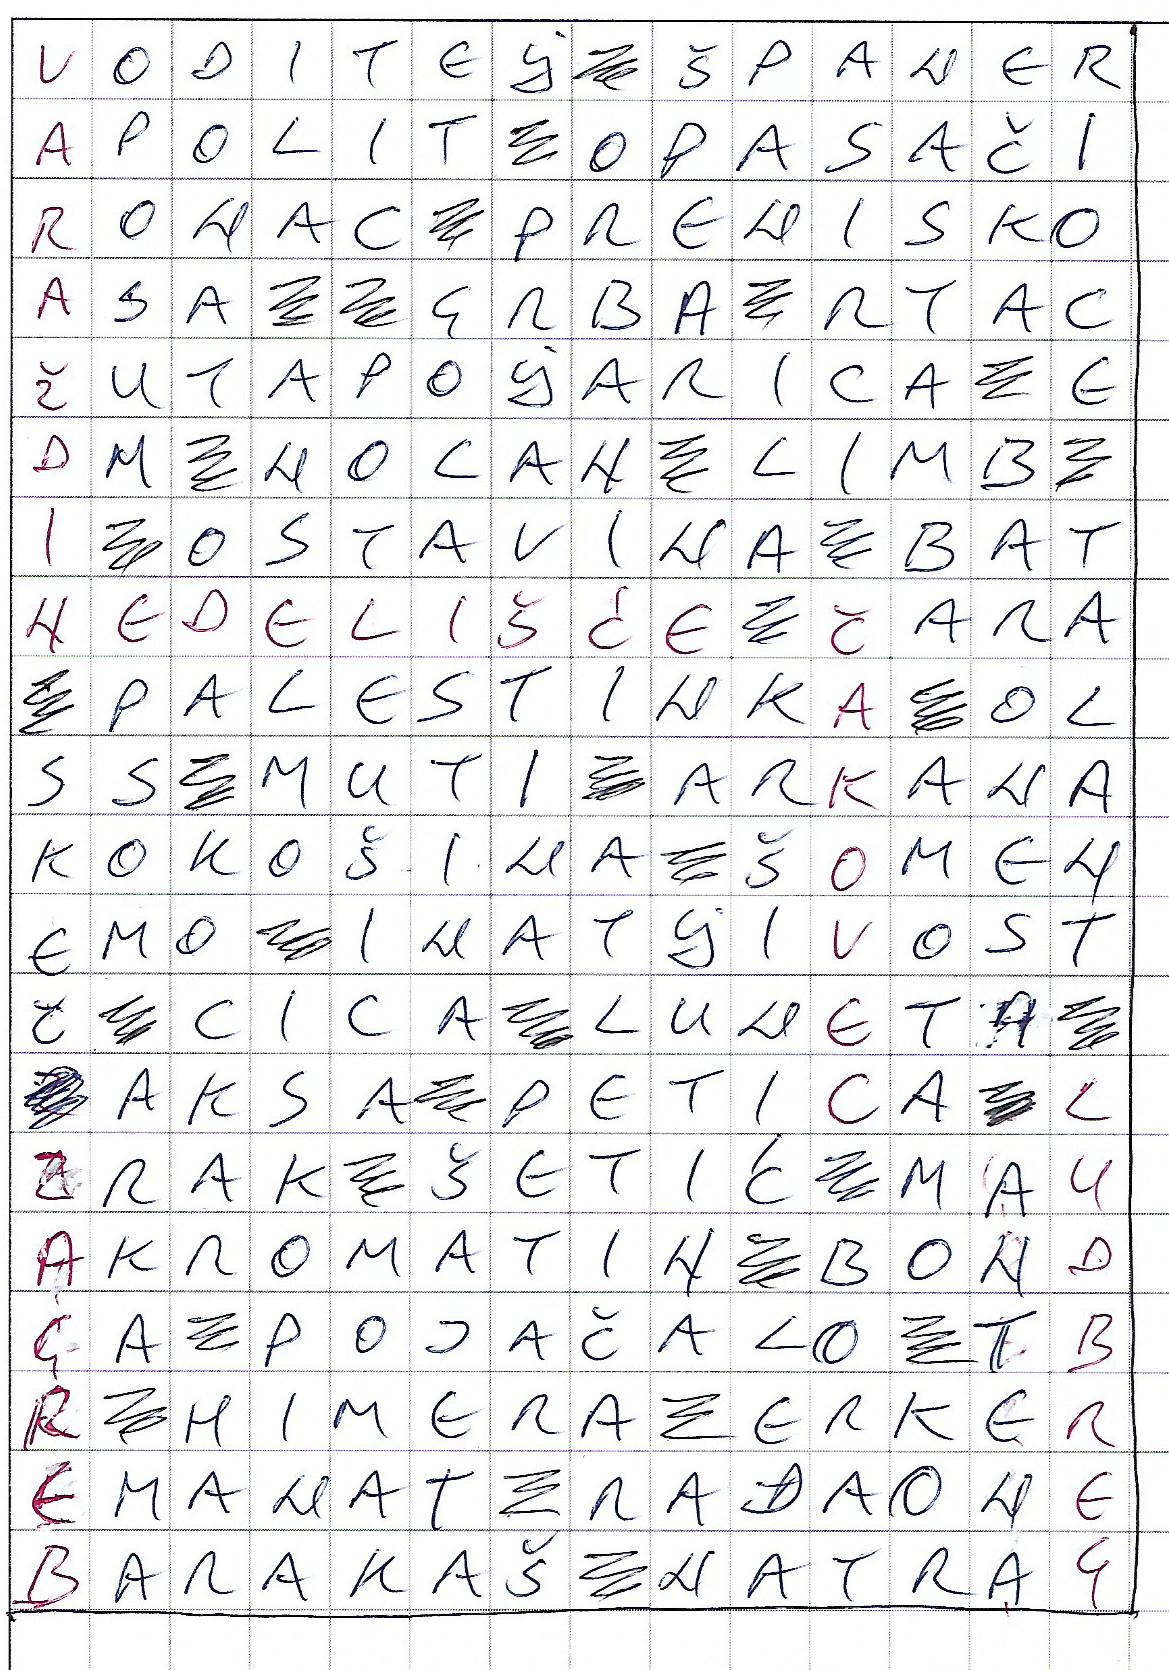 VODITELJ ŠPANER
APOLIT OPASAČI
RONAC PRENISKO
ASA GRBA RTAC
ŽUTAPOLJARICA E
DM NOLAN LIMB
I OSTAVINA BAT
NEDELIŠĆE ČARA
PALESTINKA OL
SS MUTI ARKANA
KOKOŠINA ŠOMEN
EMO INATLJIVOST
Č CICA LUNETA
AKSA PETICA L
ZRAK ŠETIĆ MAU
AKROMATIN BOND
GA POJAČALO TB
R HIMERA ERKER
EMANAT RADAONE
BARAKAŠ NATRAG